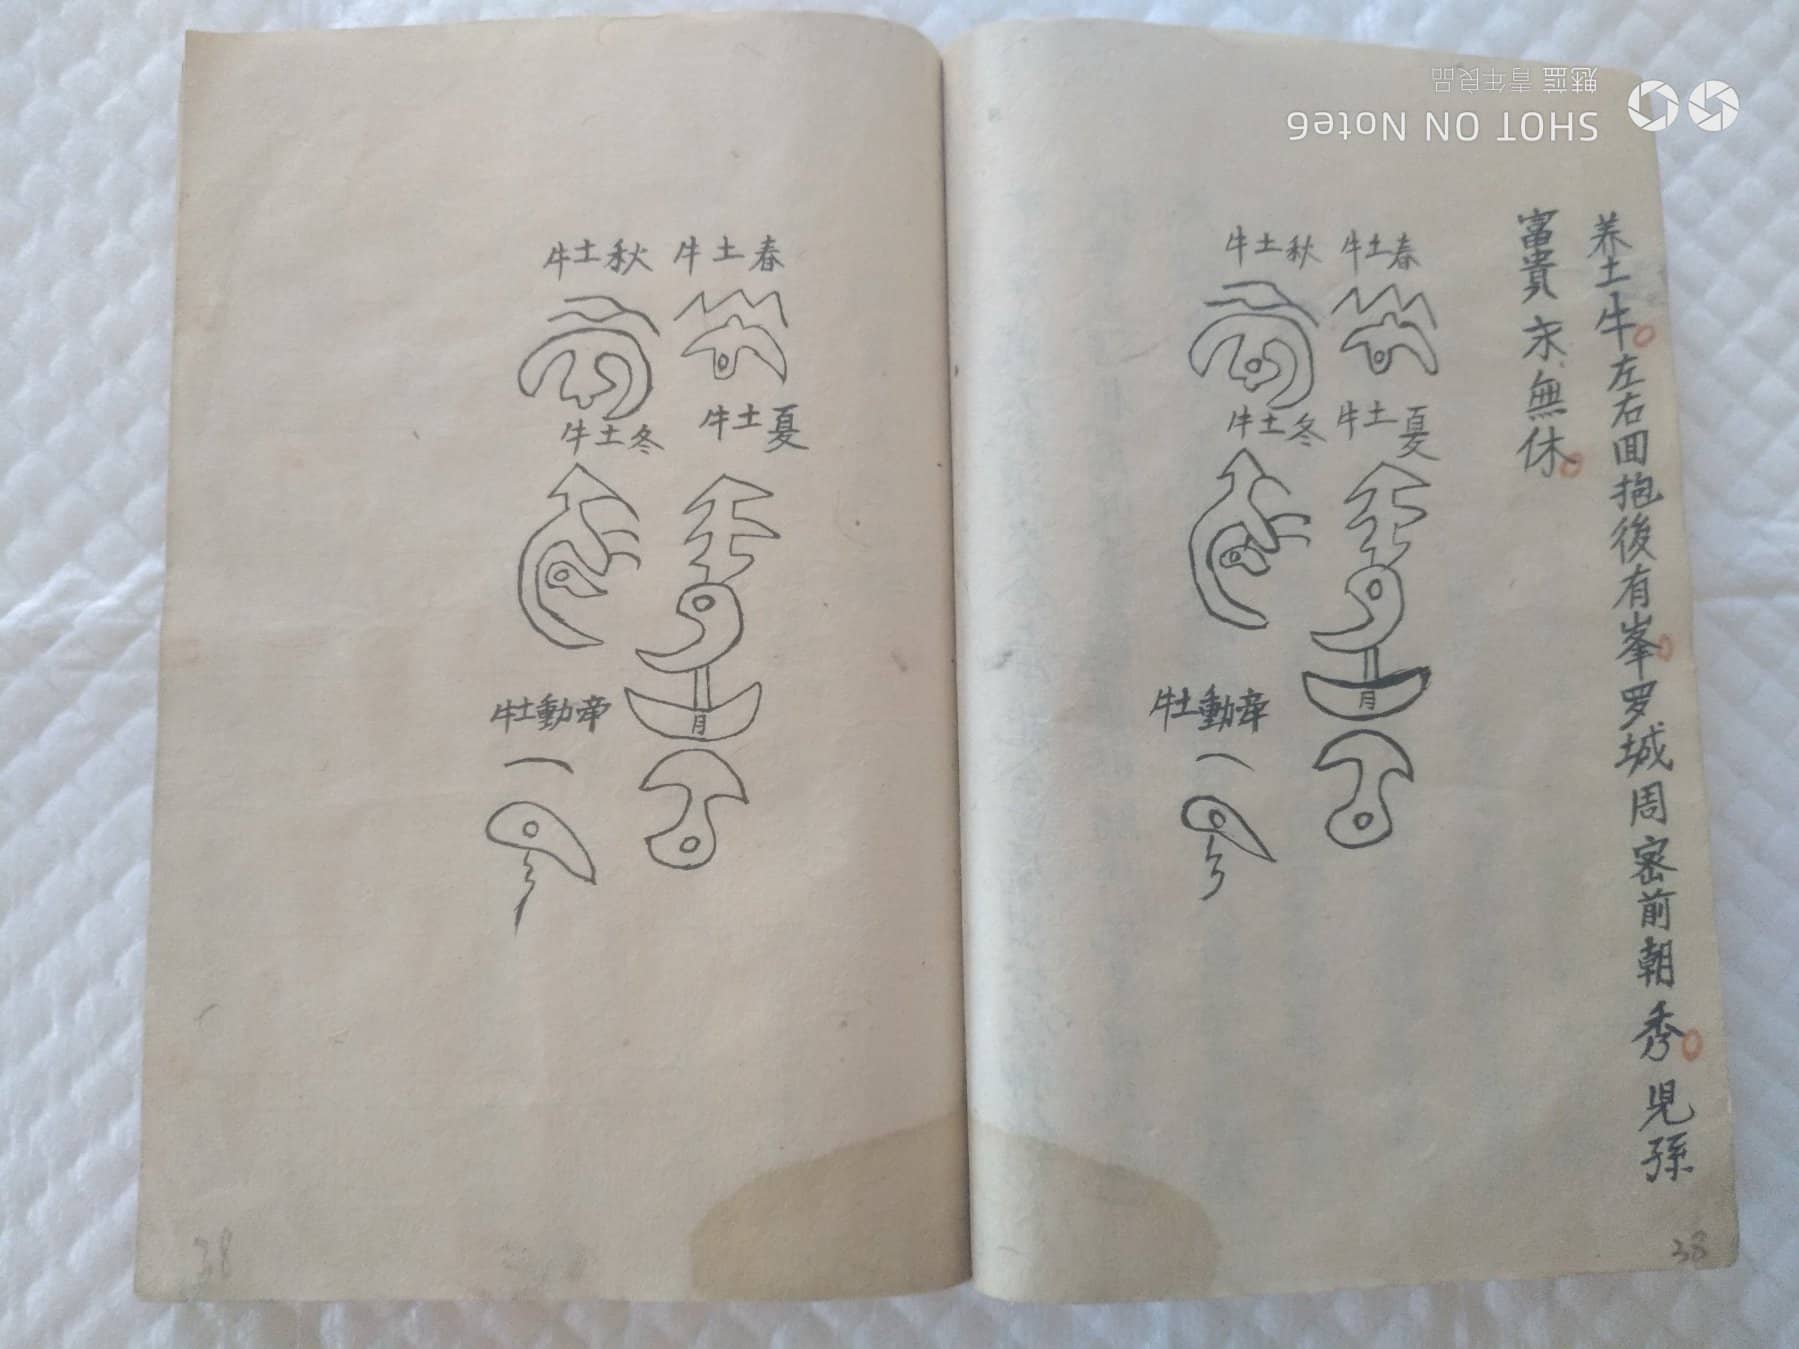 养土牛左右回抱後有峯罗城周密前朝秀児孫
富貴永無休
春土牛
秋土牛
夏土牛
冬土牛
月
牽動土牛
38
春土牛
秋土牛
夏土牛
冬土牛
月
牽動土牛
38
SHOT ON Note6
魅蓝 青年良品